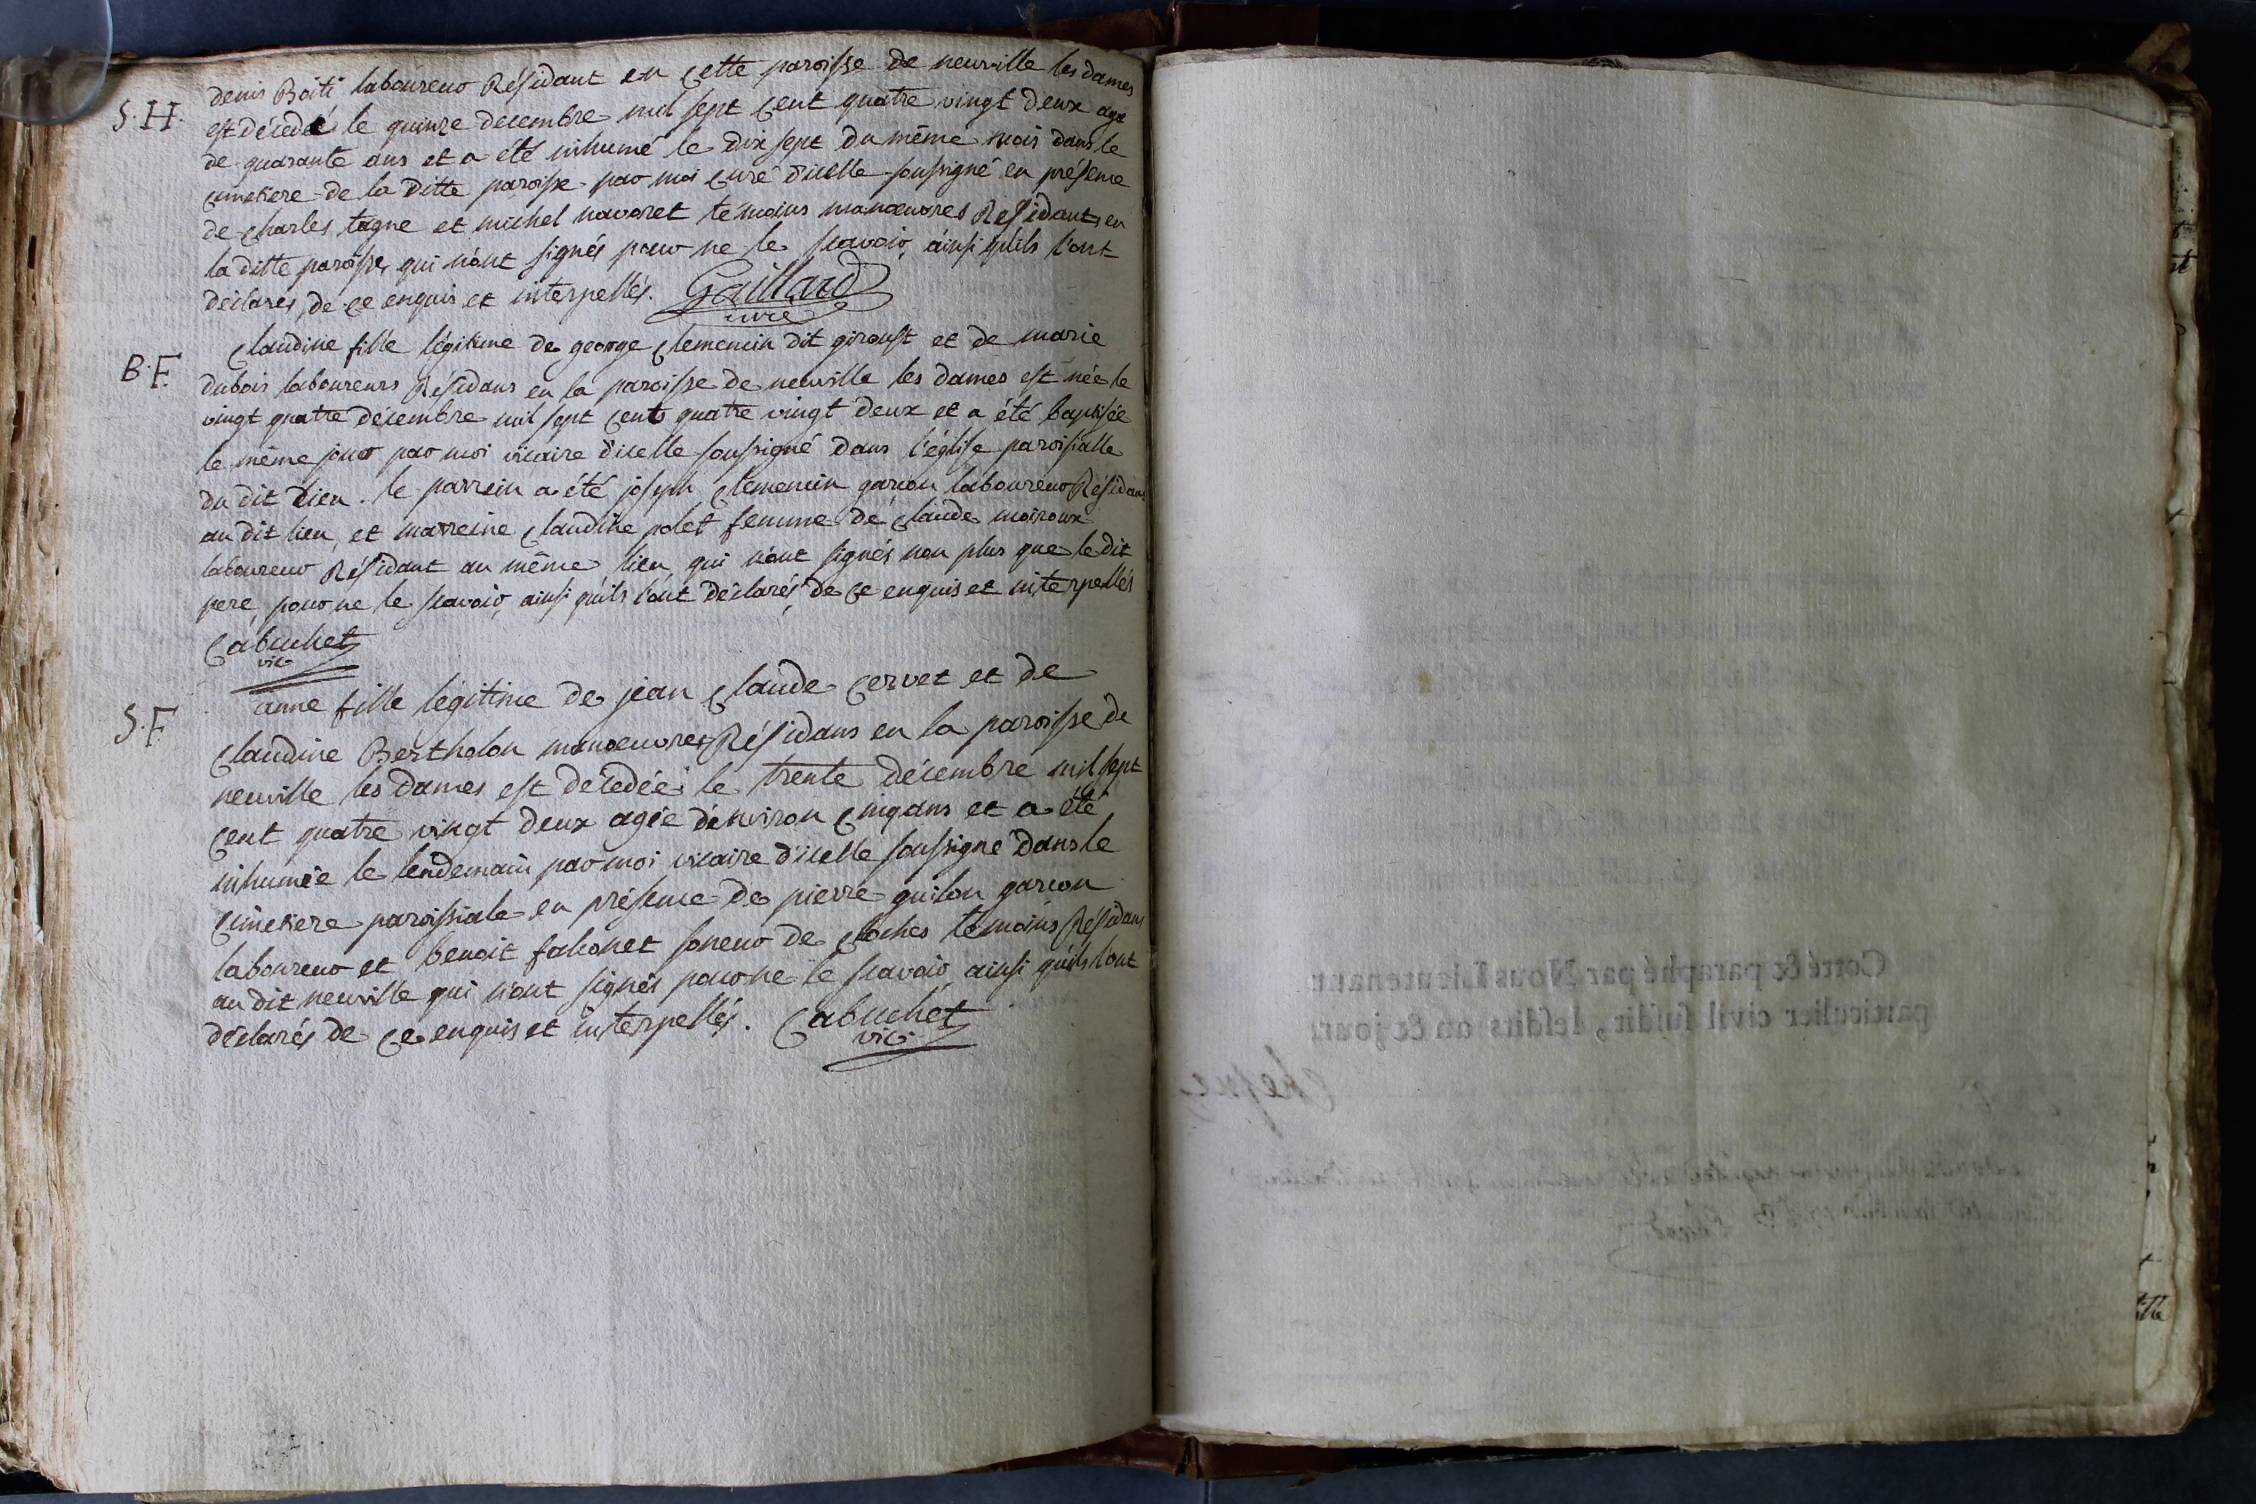 S. H.
denis Boiti laboureur Résidant en cette paroisse de neuville les dames
est décedé le quinze decembre mil sept cent quatre vingt deux agé
de quarante ans et a été inhumé le dix sept du même mois dans le
cimetiere de la ditte paroisse par moi curé d'icelle soussigné en présence
de charles tagne et michel navoret temoins manœuvres Résidants en
la ditte paroisse, qui n'ont signés pour ne le scavoir, ainsi qu'ils l'ont
déclarés, de ce enquis et interpellés. Gaillard
curé
B. F.
Claudine fille légitime de george Clemencin dit giroust et de marie
dubois laboureurs Résidans en la paroisse de neuville les dames est née le
vingt quatre décembre mil sept cents quatre vingt deux et a été baptisée
le même jour par moi vicaire d'icelle soussigné dans l'église paroissialle
du dit lieu. le parrein a été joseph Clemencin garcon laboureur Résidant
au dit lieu, et marreine Claudine polet femme de Claude moiroux
laboureur Résidant au même lieu qui n'ont signés non plus que le dit
pere, pour ne le scavoir, ainsi qu'ils l'ont déclarés, de ce enquis et interpellés
Cabuchet
vic.
S. F.
anne fille légitime de jean Claude Cervet et de
Claudine Bertholon manoeuvres Résidans en la paroisse de
neuville les dames est décedée le trente décembre mil sept
cent quatre vingt deux agée d'environ cinq ans et a été
inhumée le lendemain par moi vicaire d'icelle soussigné dans le
cimetiere paroissiale en présence de pierre guilon garcon
laboureur et benoit falconet soneur de cloches temoins Résidans
au dit neuville qui n'ont signés pour ne le scavoir ainsi qu'ils l'ont
déclarés de ce enquis et interpellés. Cabuchet
vic.
Cotté & paraphé par Nous Lieutenant
particulier civil susdit, lesdits an & jour.